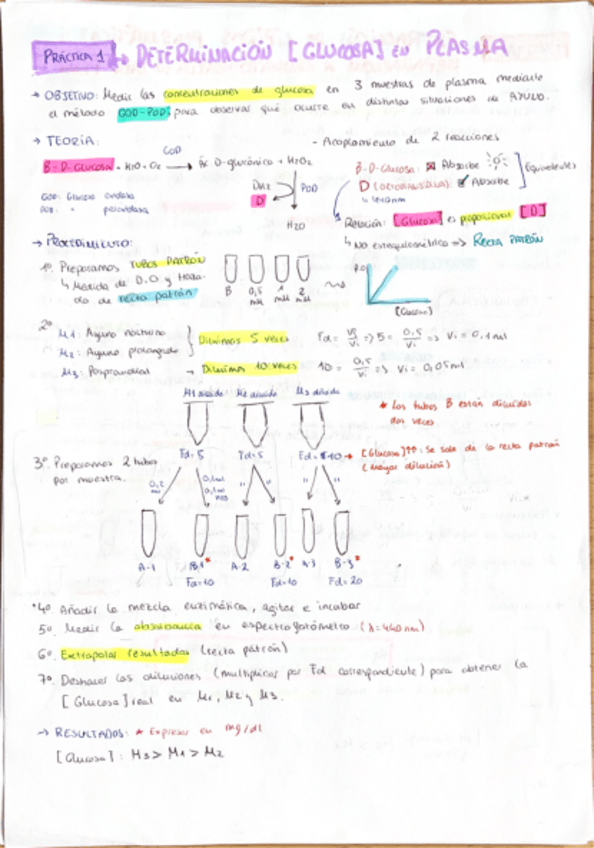 PRÁCTICA 1 → DETERMINACIÓN [GLUCOSA] en PLASMA
→ OBJETIVO: Medir las concentraciones de glucosa en 3 muestras de plasma mediante
el método GOD-POD para observar qué ocurre en distintas situaciones de AYUNO.
→ TEORÍA:
- Acoplamiento de 2 reacciones
GOD
β-D-GLUCOSA + H2O + O2 → Ác D-glucónico + H2O2
GOD: Glucosa oxidasa
POD: " peroxidasa
POD
D
H2O
β-D-Glucosa: Absorbe
D (ORTODIANISIDINA): Absorbe
Equivalentes
Relación: [Glucosa] es proporcional [D]
↳ No estequiométrica => RECTA PATRÓN
→ PROCEDIMIENTO:
1º. Preparamos TUBOS PATRÓN
↳ Medida de D.O y traza-
do de recta patrón
B 0,5 mM 1 mM 2 mM
D.O
[Glucosa]
2º
M1: Ayuno nocturno
M2: Ayuno prolongado
Diluimos 5 veces
Fd = Vf/Vi => 5 = 0,5/Vi => Vi = 0,1 ml
M3: Posprandial → Diluimos 10 veces
10 = 0,5/Vi => Vi = 0,05 ml
M1 diluido M2 diluido M3 diluido
* Los tubos B están diluidos
dos veces
Fd = 5 Fd = 5 Fd = 10
→ [Glucosa]↑↑: Se sale de la recta patrón
(mayor dilución)
3º. Preparamos 2 tubos
por muestra.
0,2 ml
0,1 ml
0,1 ml H2O
" " " "
A-1 B-1* A-2 B-2* A-3 B-3*
Fd=10 Fd=10 Fd=20
*4º. Añadir la mezcla enzimática, agitar e incubar
5º. Medir la absorbancia en espectrofotómetro (λ=440nm)
6º. Extrapolar resultados (recta patrón)
7º. Deshacer las diluciones (multiplicar por Fd correspondiente) para obtener la
[Glucosa] real en M1, M2 y M3.
→ RESULTADOS: * Expresar en mg/dl
[Glucosa]: M3 > M1 > M2